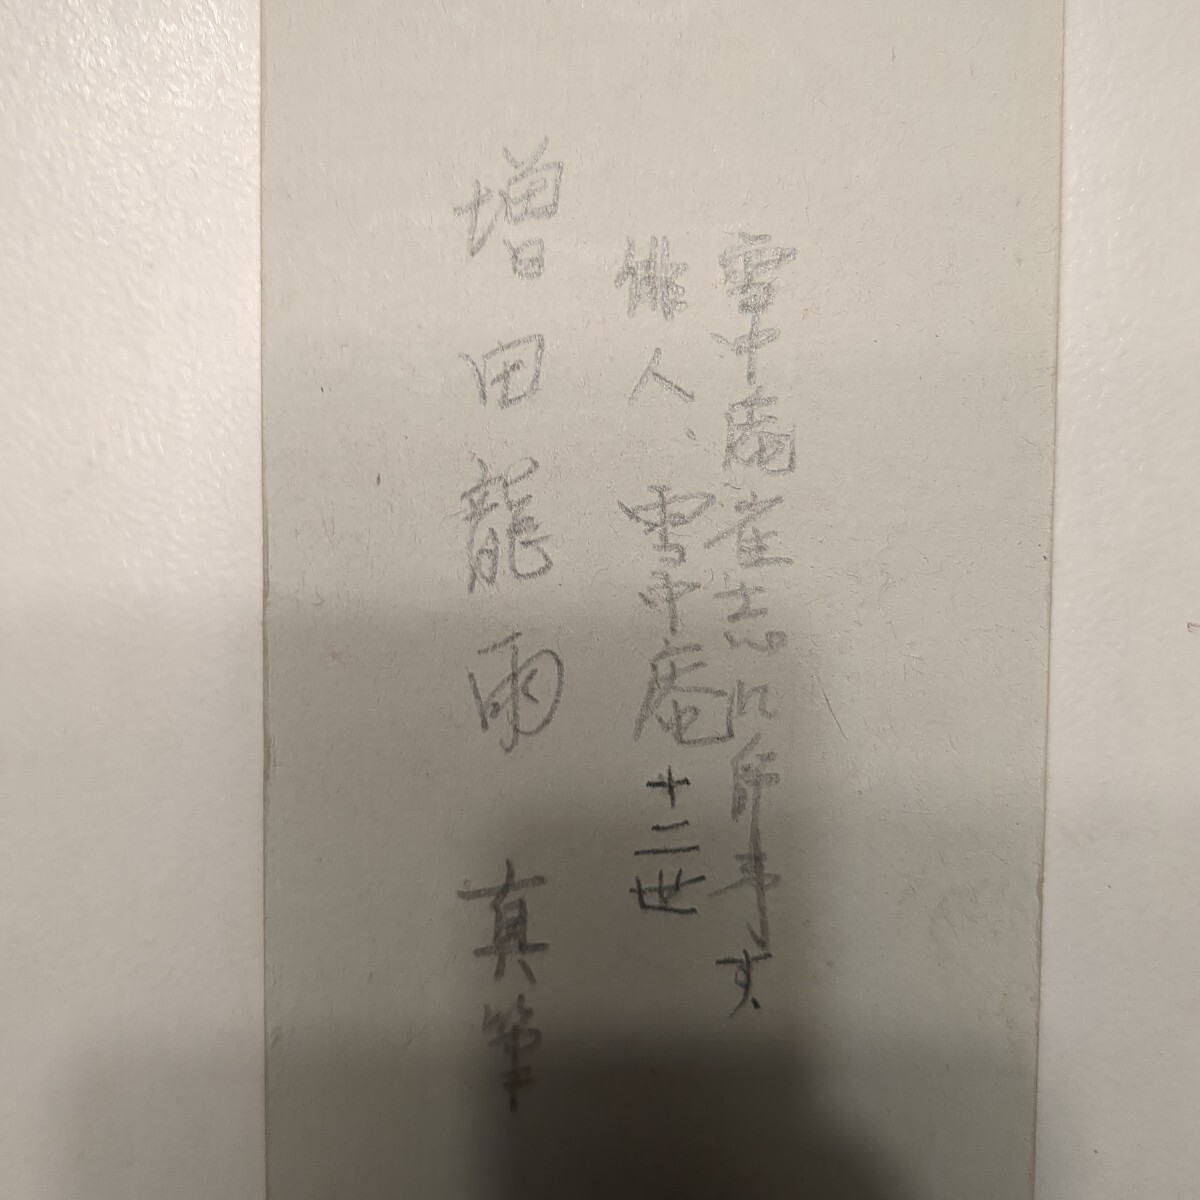 雪中庵雀志に師事す
俳人、雪中庵十二世
増田龍雨 真筆